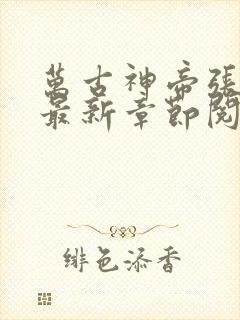 萬古神帝張
最新章節閱
緋色添香